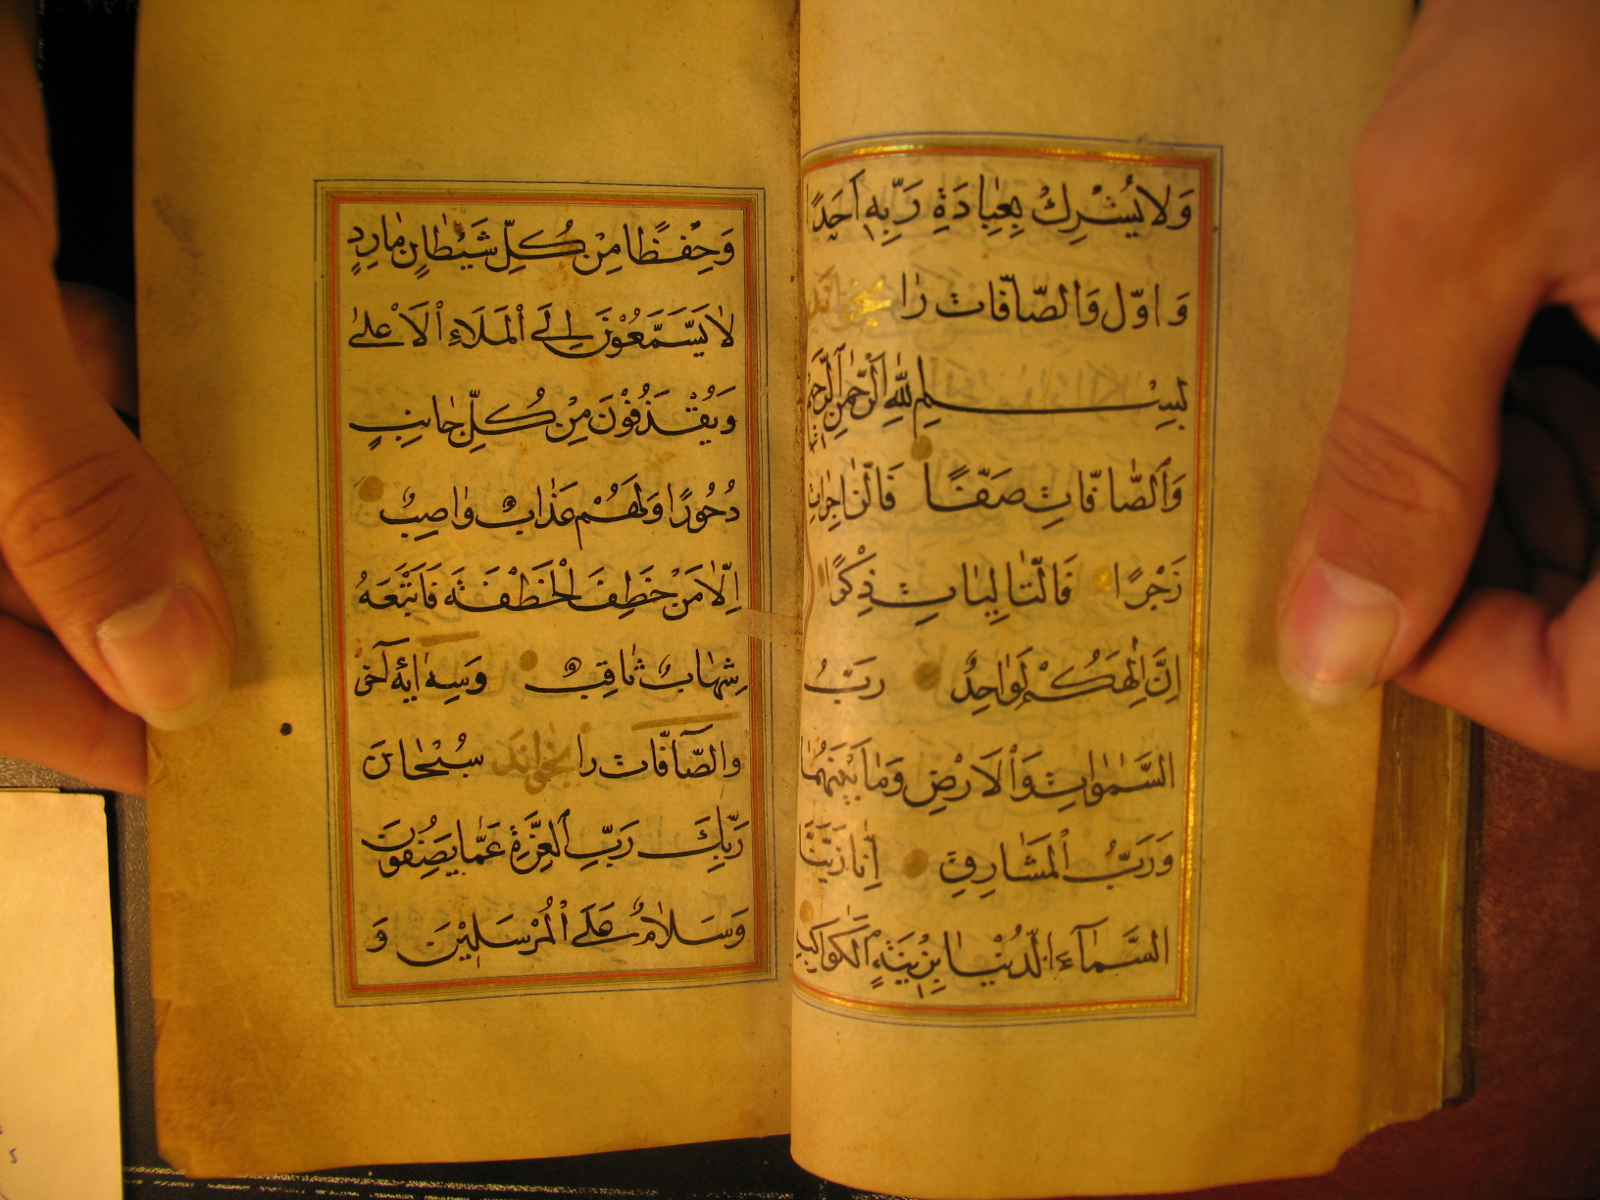 وَلَا يُشْرِكْ بِعِبَادَةِ رَبِّهِ اَحَدًا
وَ اوّل وَالصّافّات رٰا بخواند
بِسْمِ اللّٰهِ الرَّحْمٰنِ الرَّحِيمِ
وَالصَّافَّاتِ صَفًّا فَالزَّاجِرَاتِ
زَجْرًا فَالتَّالِيَاتِ ذِكْرًا
اِنَّ اِلٰهَكُمْ لَوَاحِدٌ رَبُّ
السَّمٰوَاتِ وَالْاَرْضِ وَمَا بَيْنَهُمَا
وَرَبُّ الْمَشَارِقِ اِنَّا زَيَّنَّا
السَّمَاءَ الدُّنْيَا بِزِينَةٍ الْكَوَاكِبِ
وَحِفْظًا مِنْ كُلِّ شَيْطَانٍ مَارِدٍ
لَا يَسَّمَّعُوْنَ اِلَى الْمَلَاءِ الْاَعْلٰى
وَيُقْذَفُوْنَ مِنْ كُلِّ جَانِبٍ
دُحُوْرًا وَلَهُمْ عَذَابٌ وَاصِبٌ
اِلَّا مَنْ خَطِفَ الْخَطْفَةَ فَاَتْبَعَهُ
شِهَابٌ ثَاقِبٌ وَسِه اٰيهٔ آخر
والصّافّات را بخواند سُبْحَانَ
رَبِّكَ رَبِّ الْعِزَّةِ عَمَّا يَصِفُوْنَ
وَسَلَامٌ عَلَى الْمُرْسَلِيْنَ وَ